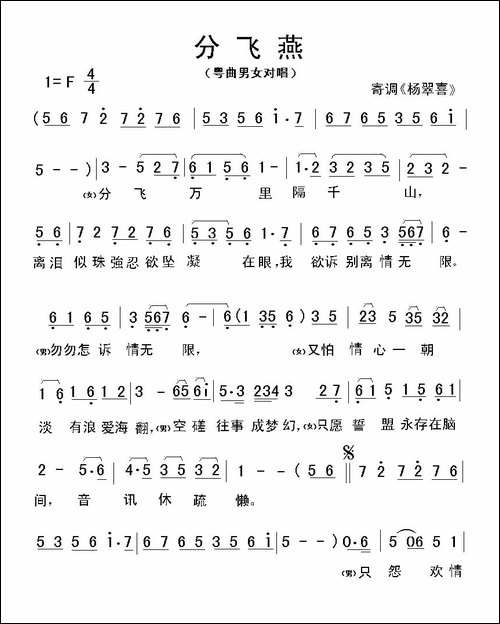 分 飞 燕
(粤曲男女对唱)
1=F 4/4
寄调《杨翠喜》
(5 6 7 2 7 2 7 6 | 5 3 5 6 i·7 | 6 7 6 5 3 5 6 i |
5 - -) | 3 - 5 2 7 | 6 1 5 6 1 - | 1·2 3 2 3 5 | 2 3 2 -
(女)分 飞 万 里 隔 千 山,
5 6 | 7 2 7 2 7 6 | 5 3 5 6 1·7 | 6 7 6 5 3 5 567 | 6 -
离 泪 似 珠 強 忍 欲 坠 凝 在 眼, 我 欲 诉 别 离 情 无 限。
6 1 6 5 | 3 567 6 - | 6 (1 3 5 6) | 3·5 3 5 | 2 3 35 32
(男)勿勿怎 诉 情无 限, (女)又怕 情 心 一 朝
1 6 | 2 1 6 1 2 | 3· 65 6i | 5·3 234 3 | 2 7 6 1 | 5 1 5 6 1
淡 有浪 爱海 翻, (男)空 磋 往事 成梦 幻, (女)只愿 誓 盟 永存在脑
2 - 5·6 | 4·5 3 5 3 2 | 1 - - 5 6 𝄋 7 2 7 2 7 6 |
间, 音 讯 休 疏 懒。
5 3 5 6 i·7 | 6 7 6 5 3 5 6 i | 5 - -) 0·6 | 5 06 5 1 |
(男)只 怨 欢 情